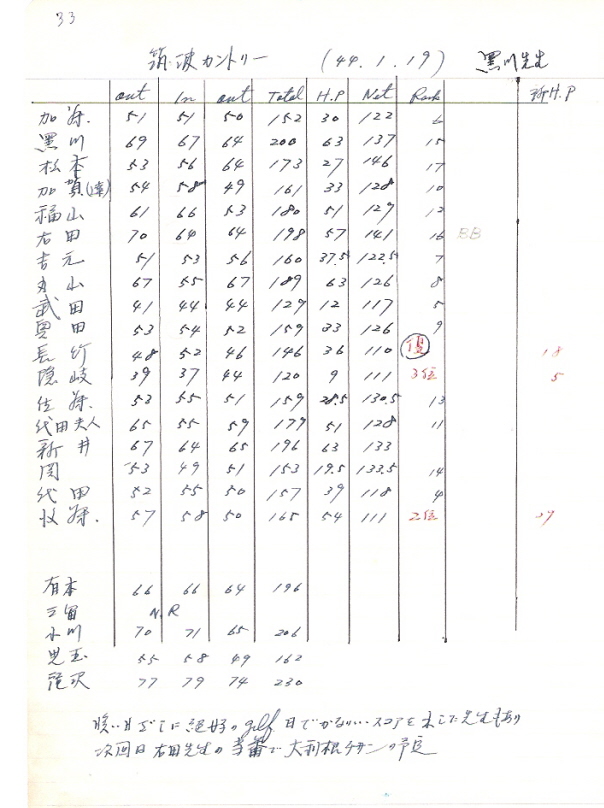 33
筑波カントリー (44.1.19) 黒川先生
out In out Total H.P Net Rank 新H.P
加藤 51 51 50 152 30 122 6
黒川 69 67 64 200 63 137 15
松本 53 56 64 173 27 146 17
加賀(達) 54 58 49 161 33 128 10
福山 61 66 53 180 51 129 12
右田 70 64 64 198 57 141 16 BB
吉元 51 53 56 160 37.5 122.5 7
丸山 67 55 67 189 63 126 8
武田 41 44 44 129 12 117 5
奥田 53 54 52 159 33 126 9
長竹 48 52 46 146 36 110 優 18
隠岐 39 37 44 120 9 111 3位 5
佐藤 53 55 51 159 28.5 130.5 13
代田夫人 65 55 59 179 51 128 11
新井 67 64 65 196 63 133
岡 53 49 51 153 19.5 133.5 14
代田 52 55 50 157 39 118 4
牧藤 57 58 50 165 54 111 2位
有本 66 66 64 196
三留 N.R
小川 70 71 65 206
児玉 55 58 49 162
滝沢 77 79 74 230
golf 日でかなりいいスコアを 先生もあり
次回は右田先生の当番で大利根チサンの予定